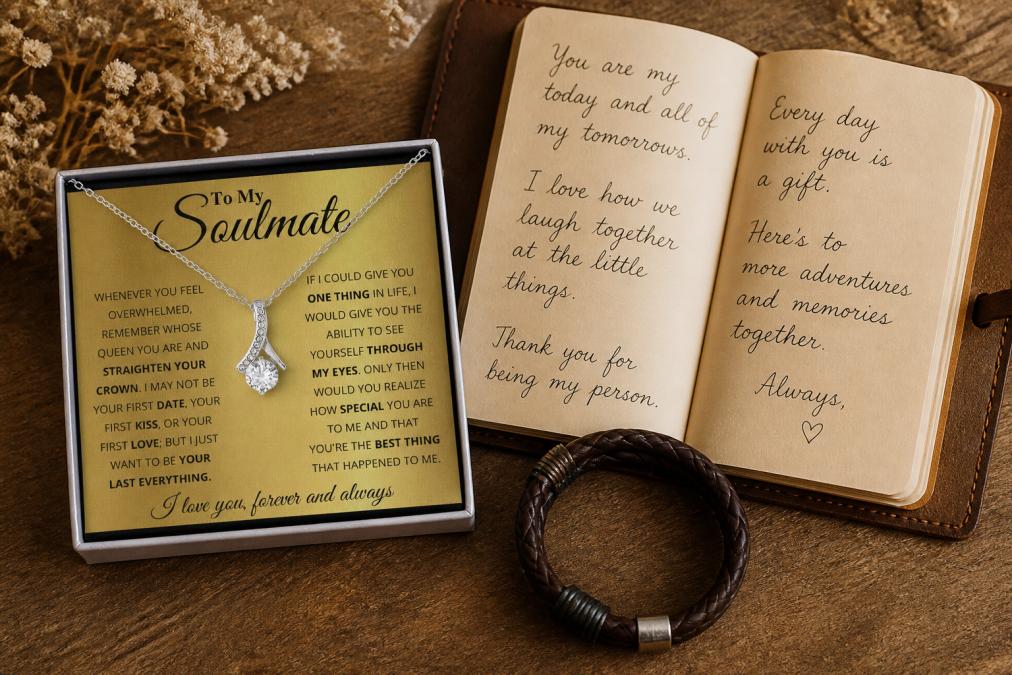 To My
Soulmate
WHENEVER YOU FEEL
OVERWHELMED,
REMEMBER WHOSE
QUEEN YOU ARE AND
STRAIGHTEN YOUR
CROWN. I MAY NOT BE
YOUR FIRST DATE, YOUR
FIRST KISS, OR YOUR
FIRST LOVE; BUT I JUST
WANT TO BE YOUR
LAST EVERYTHING.
IF I COULD GIVE YOU
ONE THING IN LIFE, I
WOULD GIVE YOU THE
ABILITY TO SEE
YOURSELF THROUGH
MY EYES. ONLY THEN
WOULD YOU REALIZE
HOW SPECIAL YOU ARE
TO ME AND THAT
YOU'RE THE BEST THING
THAT HAPPENED TO ME.
I love you, forever and always
You are my
today and all of
my tomorrows.
I love how we
laugh together
at the little
things.
Thank you for
being my person.
Every day
with you is
a gift.
Here's to
more adventures
and memories
together.
Always,
♡